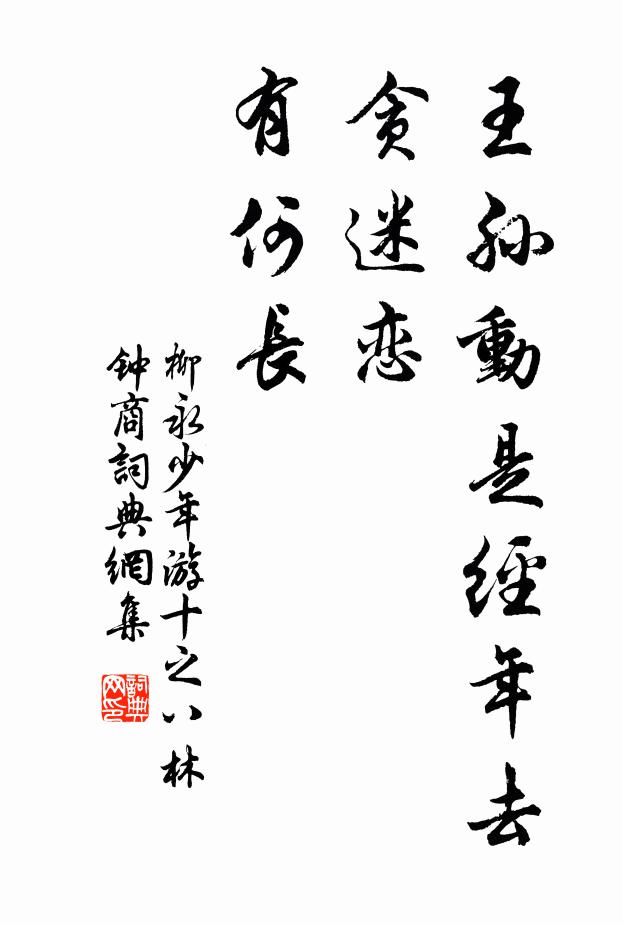 王孙動是經年去
貪迷恋
有何長
柳永少年游十之八林
钟商詞典網集
詞典
网印